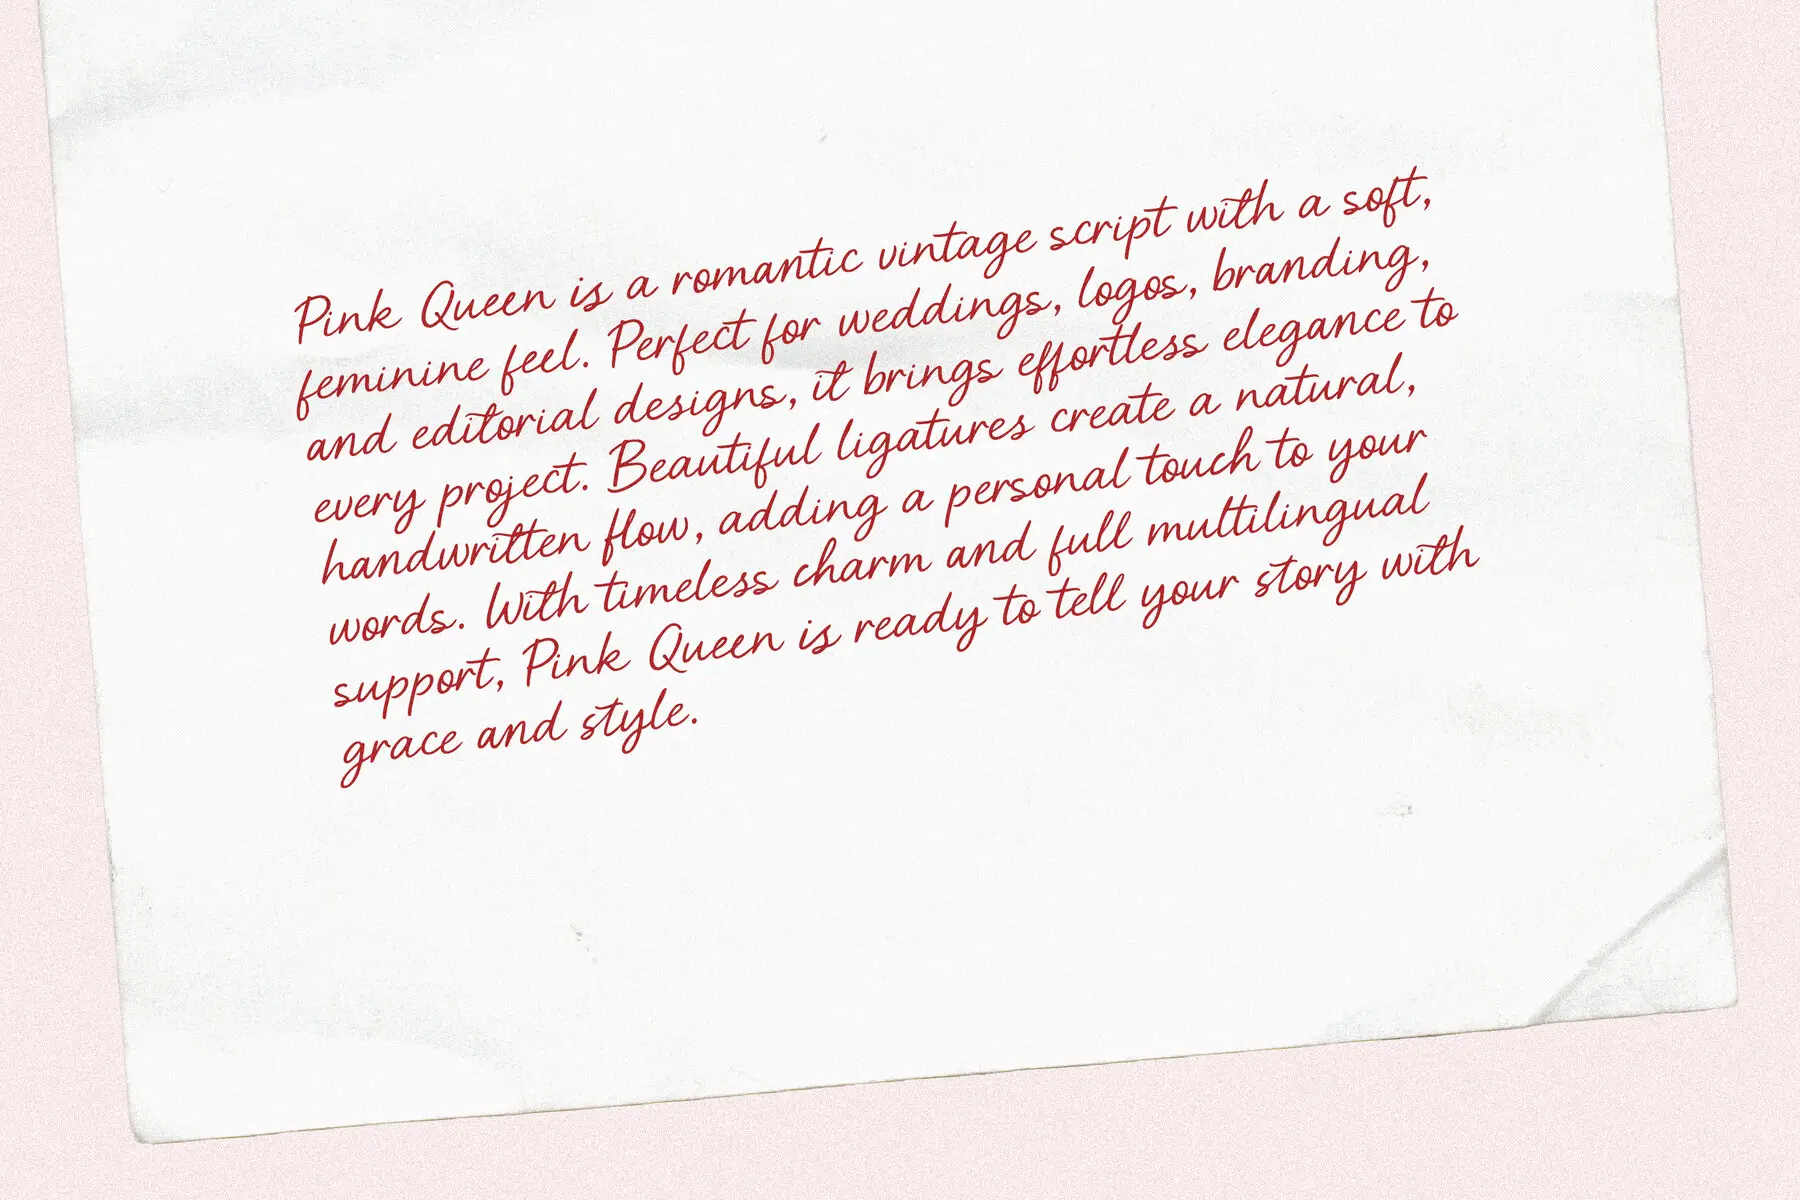 Pink Queen is a romantic vintage script with a soft,
feminine feel. Perfect for weddings, logos, branding,
and editorial designs, it brings effortless elegance to
every project. Beautiful ligatures create a natural,
handwritten flow, adding a personal touch to your
words. With timeless charm and full multilingual
support, Pink Queen is ready to tell your story with
grace and style.